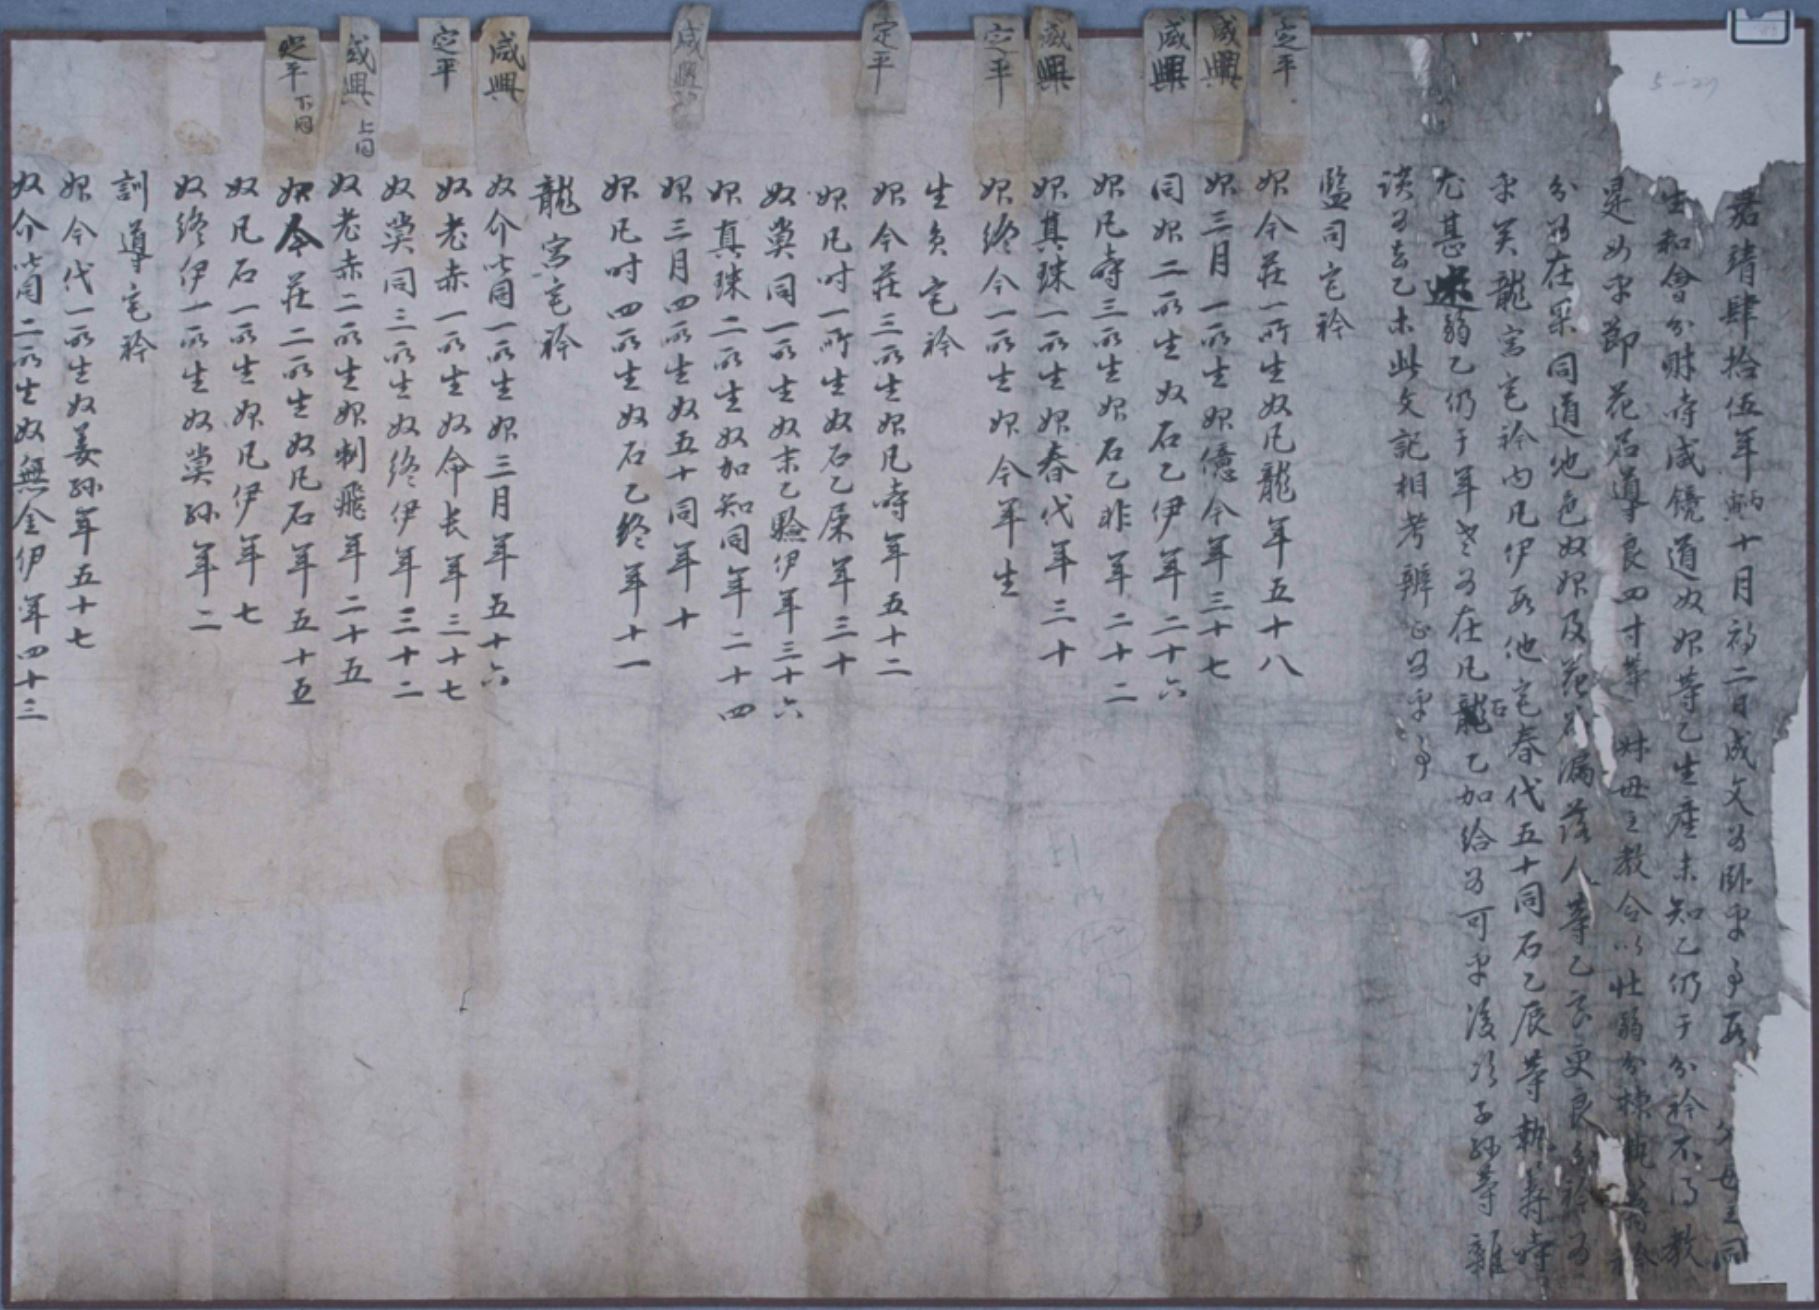 嘉靖肆拾伍年 十月初二日成文為臥乎事段 父母主同
生和會分財時咸鏡道奴婢等乙生産未知乙仍于分衿不得教
是如乎節花名導良四寸等 妹母主教令以壯弱分揀執籌分衿
為在果同道他色奴婢及花名漏落人等乙良更良分衿為
乎矣龍宮宅衿内凡伊段他宅春代五十同石乙辰等執籌時
石
尤甚 弱乙仍于年老為在凡龍乙加給為可乎後次子孫等雜
談為去乙未此文記相考辨正為乎事
監司宅衿
定平
婢今莊一所生奴凡龍年五十八
咸興
婢三月一所生婢億今年三十七
咸興
同婢二所生奴石乙伊年二十六
婢凡時三所生婢石乙非年二十二
咸興
婢真珠一所生婢春代年三十
定平
婢終今一所生婢今年生
生員宅衿
定平
婢今莊三所生婢凡時年五十二
婢凡吋一所生奴石乙屎年三十
奴蒙同一所生奴末乙驗伊年三十六
婢真珠二所生奴加知同年二十四
咸興
婢三月四所生奴五十同年十
婢凡吋四所生奴石乙終年十一
龍宮宅衿
咸興
奴介叱同一所生婢三月年五十六
定平
奴老赤一所生奴命長年三十七
奴蒙同三所生奴終伊年三十二
咸興 上同
奴老赤二所生婢制飛年二十五
定平 下同
婢今莊二所生奴凡石年五十五
奴凡石一所生婢凡伊年七
奴終伊一所生奴蒙孫年二
訓導宅衿
婢今代一所生奴姜孫年五十七
奴介叱同二所生奴無金伊年四十三